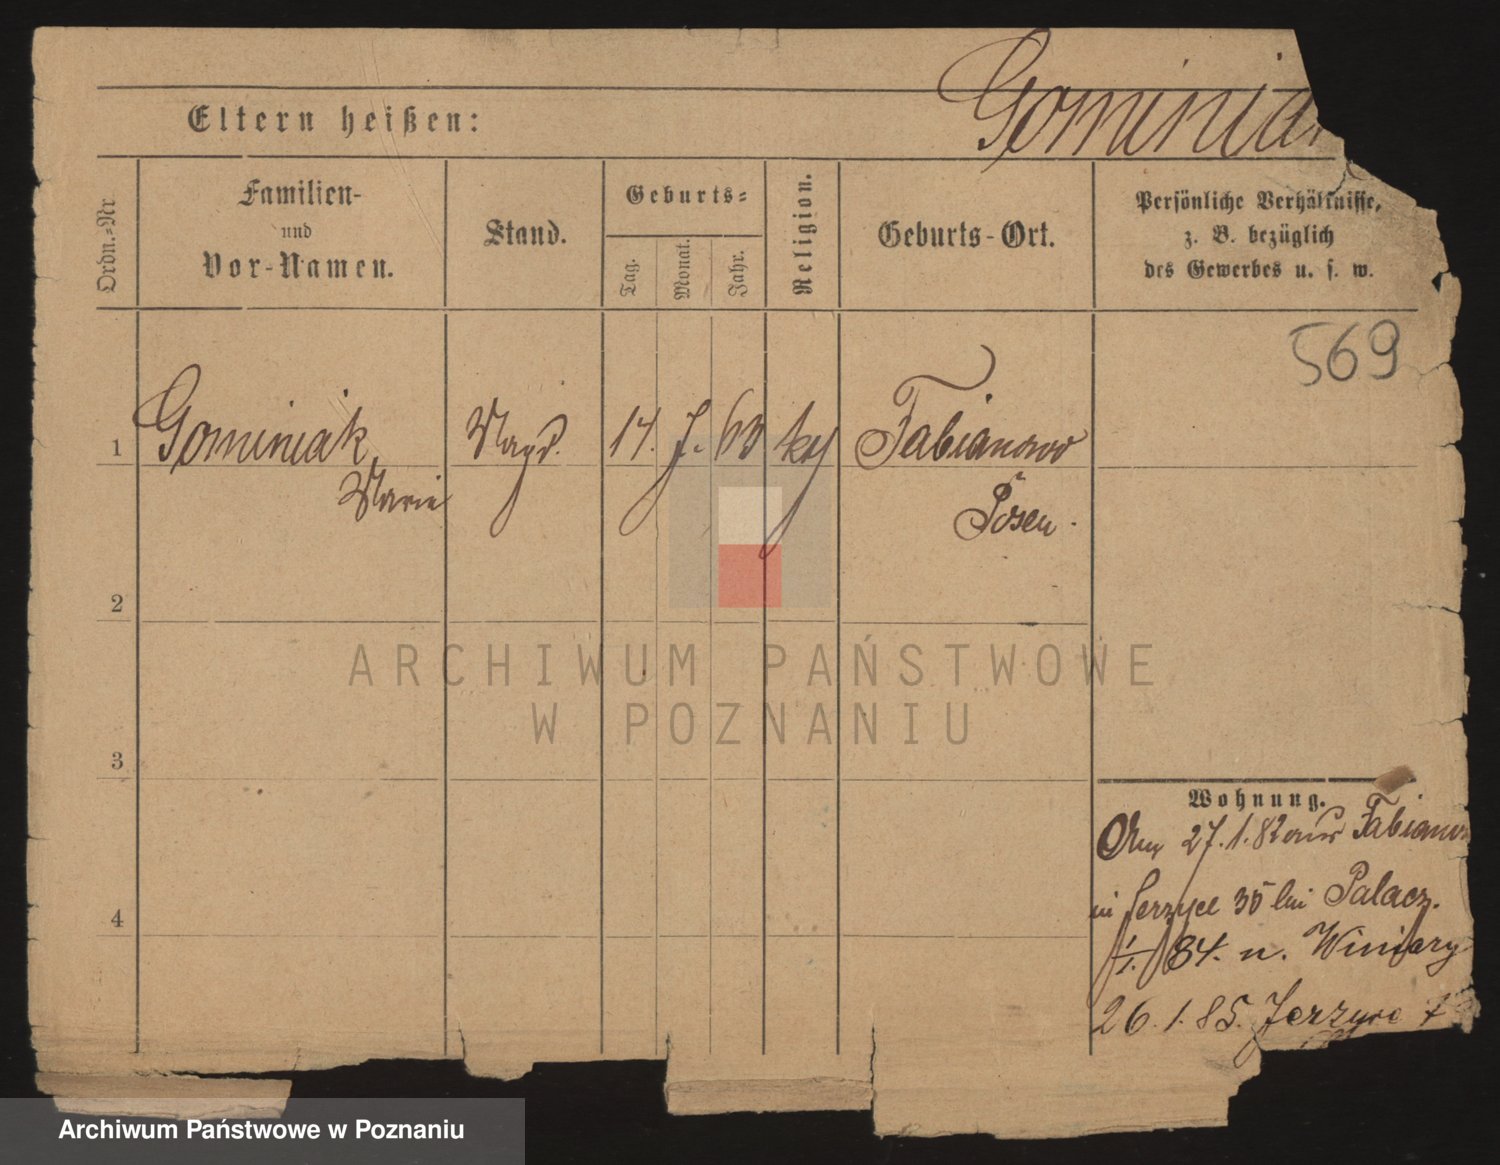 Gominia
Eltern heißen:
Ordn.-Nr.
Familien-
und
Vor-Namen.
Stand.
Geburts-
Tag.
Monat.
Jahr.
Religion.
Geburts-Ort.
Persönliche Verhältnisse,
z. B. bezüglich
des Gewerbes u. s. w.
569
1 Gominiak Magd. 14. 7. 63 kth Fabianowo
Marie Posen.
2
3
4
Wohnung.
27.1.82 aus Fabianow
in Jerzyce 35 bei Palacz.
1/1. 84. n. Winiary
26.1.85. Jerzyce
ARCHIWUM PAŃSTWOWE
W POZNANIU
Archiwum Państwowe w Poznaniu